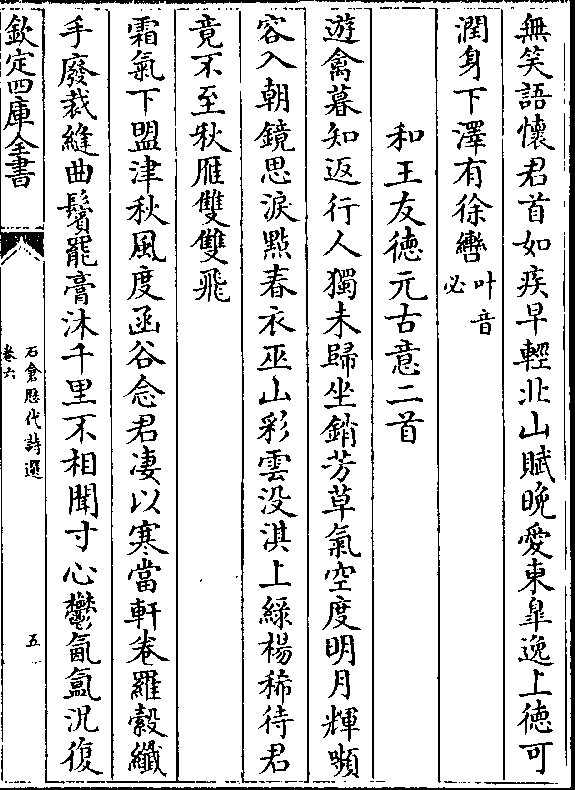 無笑語懷君首如疾早輕北山賦晩愛東臯逸上徳可
潤身下澤有徐轡叶音必
和王友徳元古意二首
遊禽暮知返行人獨未歸坐銷芳草氣空度明月輝嚬
容入朝鏡思淚㸃春衣巫山彩雲没淇上緑楊稀待君
竟不至秋雁雙雙飛
霜氣下盟津秋風度函谷念君凄以寒當軒卷羅縠纖
手廢裁縫曲鬢罷膏沐千里不相聞寸心鬱氤氲況復
欽定四庫全書
石倉歴代詩選
卷六
五